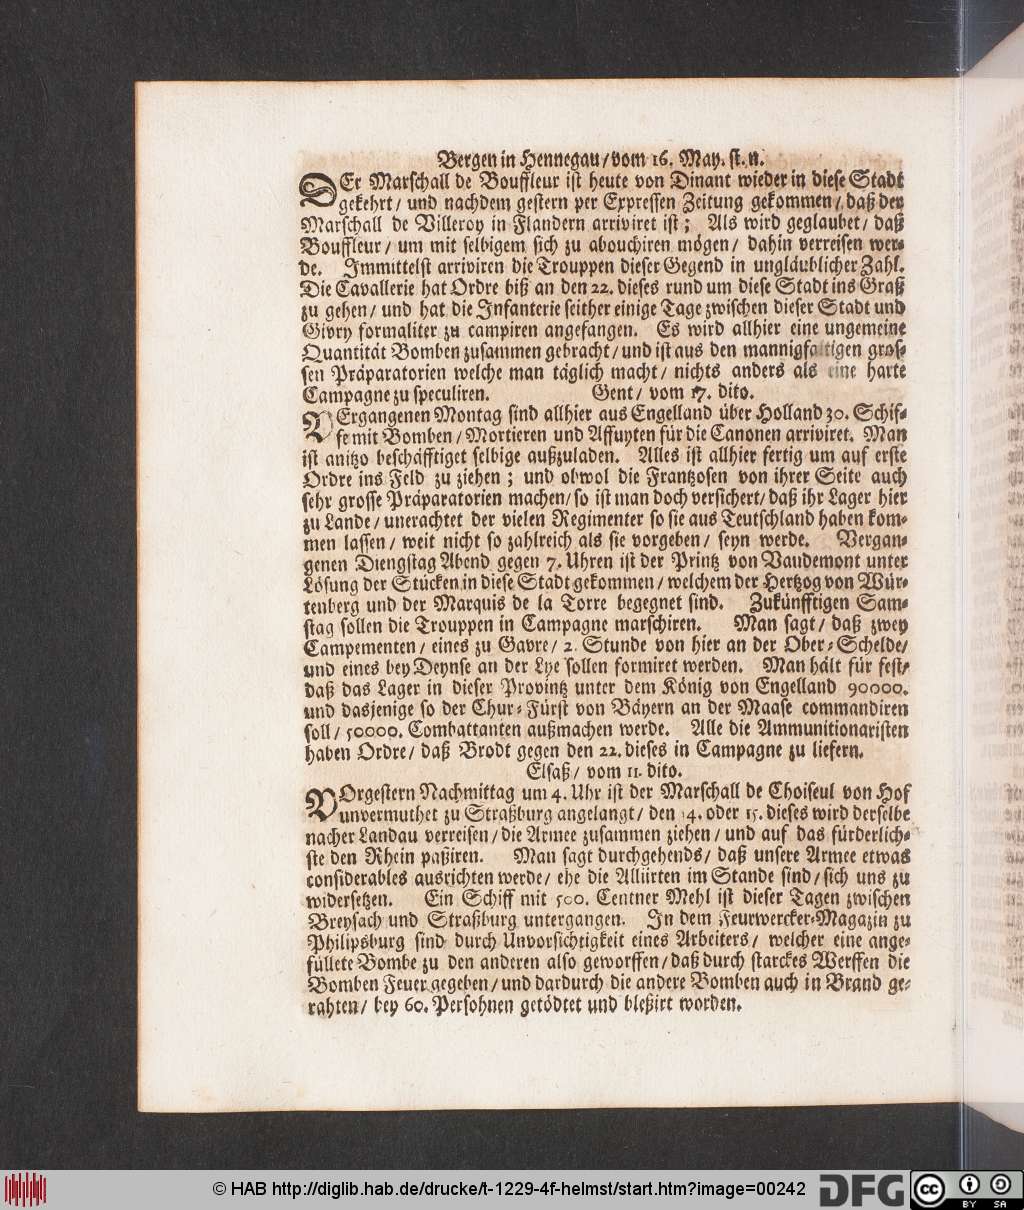 Bergen in Hennegau / vom 16. May. st. n.
DEr Marschall de Bouffleur ist heute von Dinant wieder in diese Stadt
gekehrt / und nachdem gestern per Expressen Zeitung gekommen / daß der
Marschall de Villeroy in Flandern arriviret ist ; Als wird geglaubet / daß
Bouffleur / um mit selbigem sich zu abouchiren mögen / dahin verreisen wer-
de. Immittelst arriviren die Trouppen dieser Gegend in ungläublicher Zahl.
Die Cavallerie hat Ordre biß an den 22. dieses rund um diese Stadt ins Graß
zu gehen / und hat die Infanterie seither einige Tage zwischen dieser Stadt und
Givry formaliter zu campiren angefangen. Es wird allhier eine ungemeine
Quantität Bomben zusammen gebracht / und ist aus den mannigfaltigen gros-
sen Präparatorien welche man täglich macht / nichts anders als eine harte
Campagne zu speculiren. Gent / vom 17. dito.
VErgangenen Montag sind allhier aus Engelland über Holland 30. Schif-
fe mit Bomben / Mortieren und Affuyten für die Canonen arriviret. Man
ist anitzo beschäfftiget selbige außzuladen. Alles ist allhier fertig um auf erste
Ordre ins Feld zu ziehen ; und obwol die Frantzosen von ihrer Seite auch
sehr grosse Präparatorien machen / so ist man doch versichert / daß ihr Lager hier
zu Lande / unerachtet der vielen Regimenter so sie aus Teutschland haben kom-
men lassen / weit nicht so zahlreich als sie vorgeben / seyn werde. Vergan-
genen Diengstag Abend gegen 7. Uhren ist der Printz von Vaudemont unter
Lösung der Stücken in diese Stadt gekommen / welchem der Hertzog von Wür-
tenberg und der Marquis de la Torre begegnet sind. Zukünfftigen Sam-
stag sollen die Trouppen in Campagne marschiren. Man sagt / daß zwey
Campementen / eines zu Gavre / 2. Stunde von hier an der Ober-Schelde /
und eines bey Deynse an der Lye sollen formiret werden. Man hält für fest /
daß das Lager in dieser Provintz unter dem König von Engelland 90000.
und dasjenige so der Chur-Fürst von Bäyern an der Maase commandiren
soll / 50000. Combattanten außmachen werde. Alle die Ammunitionaristen
haben Ordre / daß Brodt gegen den 22. dieses in Campagne zu liefern.
Elsaß / vom 11. dito.
VOrgestern Nachmittag um 4. Uhr ist der Marschall de Choiseul von Hof
unvermuthet zu Straßburg angelangt / den 14. oder 15. dieses wird derselbe
nacher Landau verreisen / die Armee zusammen ziehen / und auf das fürderlich-
ste den Rhein paßiren. Man sagt durchgehends / daß unsere Armee etwas
considerables ausrichten werde / ehe die Alliirten im Stande sind / sich uns zu
widersetzen. Ein Schiff mit 500. Centner Mehl ist dieser Tagen zwischen
Breysach und Straßburg untergangen. In dem Feurwercker-Magazin zu
Philipsburg sind durch Unvorsichtigkeit eines Arbeiters / welcher eine ange-
füllete Bombe zu den anderen also geworffen / daß durch starckes Werffen die
Bomben Feuer gegeben / und dardurch die andere Bomben auch in Brand ge-
rahten / bey 60. Persohnen getödtet und bleßirt worden.
© HAB http://diglib.hab.de/drucke/t-1229-4f-helmst/start.htm?image=00242
DFG
cc BY SA